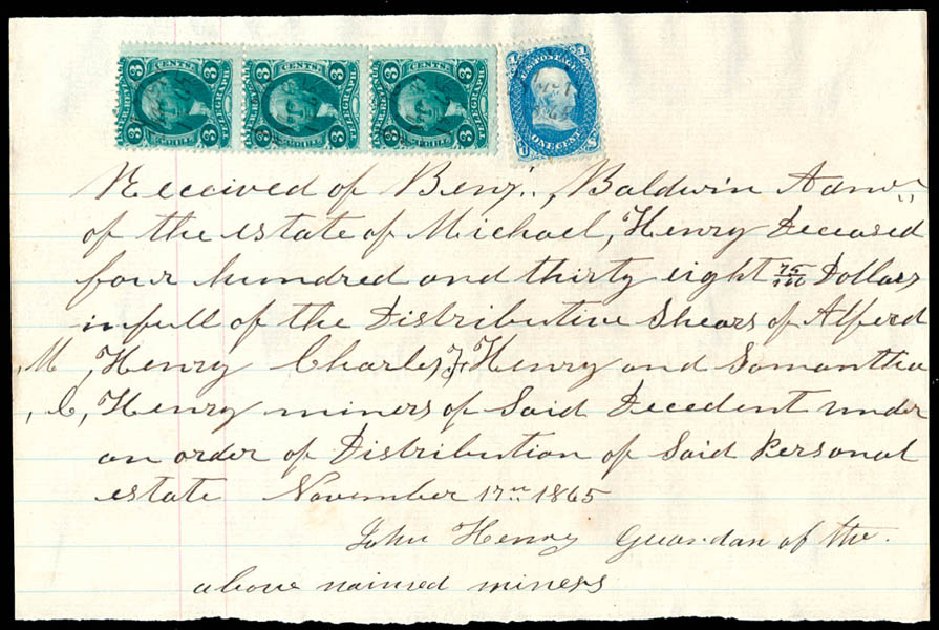 3 CENTS 3 3 CENTS 3 3 CENTS 3 U.S. POSTAGE
TELEGRAPH
3 3 3 3 3 3 ONE CENT
U S
Received of Benj., Baldwin Adm
of the estate of Michael, Henry Deceased
four hundred and thirty eight 75/100 Dollars
in full of the Distributive Shears of Alferd
, M , Henry Charles, F, Henry and Samantha
, C, Henry miners of Said Decedent under
an order of Distribution of Said Personal
estate November 17th 1865
John Henry Guardan of the.
above naimed miners